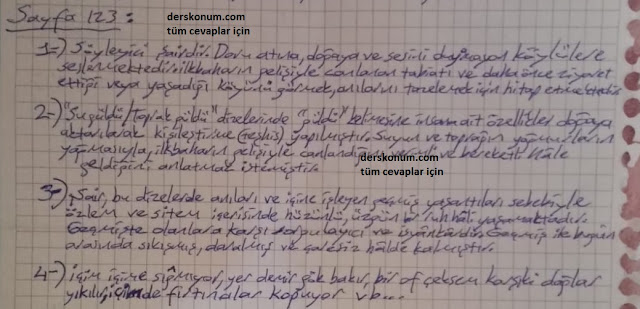 Sayfa 123:
derskonum.com
tüm cevaplar için
1-) Söyleyici şairdir. Doru atına, doğaya ve sesini duymayan köylülere
seslenmektedir. ilkbaharın gelişiyle canlanan tabiatı ve daha önce ziyaret
ettiği veya yaşadığı köyünü görmek, anılarını tazelemek için hitap etmektedir
2-) "Su güldü/Toprak güldü" dizelerinde "güldü" kelimesine insana ait özellikler doğaya
aktarılarak kişileştirme (teşhis) yapılmıştır. Suyun ve toprağın yağmurların
yağmasıyla, ilkbaharın gelişiyle canlandığını ve bereketli hale
geldiğini anlatmak istemiştir.
derskonum.com
tüm cevaplar için
3-) Şair, bu dizelerde anıları ve içine işleyen geçmiş yaşantıları sebebiyle
özlem ve sitem içerisinde hüzünlü, üzgün bir ruh hali yaşamaktadır.
Geçmişte olanlara karşı sorgulayıcı ve isyankardır. Geçmiş ile bugün
arasında sıkışmış, daralmış ve çaresiz hâlde kalmıştır.
4-) içim içime sığmıyor, yer demir gök bakır, bir of çeksem karşıki dağlar
yıkılır, içimde fırtınalar kopuyor vb...